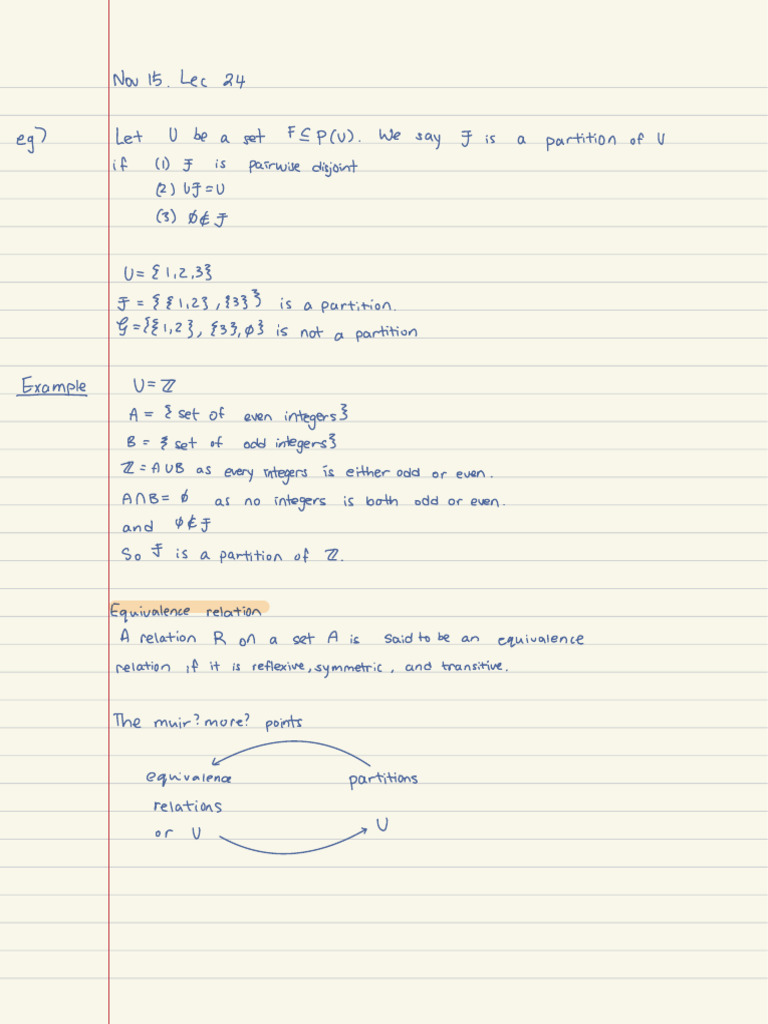 Nov 15. Lec 24
eg) Let U be a set F ⊆ P(U). We say F is a partition of U
if (1) F is pairwise disjoint
(2) UF = U
(3) ∅ ∉ F
U = {1,2,3}
F = {{1,2}, {3}} is a partition.
G = {{1,2}, {3}, ∅} is not a partition
Example U = ℤ
A = {set of even integers}
B = {set of odd integers}
ℤ = A∪B as every integers is either odd or even.
A∩B = ∅ as no integers is both odd or even.
and ∅ ∉ F
So F is a partition of ℤ.
Equivalence relation
A relation R on a set A is said to be an equivalence
relation, if it is reflexive, symmetric, and transitive.
The muir? more? points
equivalence partitions
relations
or U U